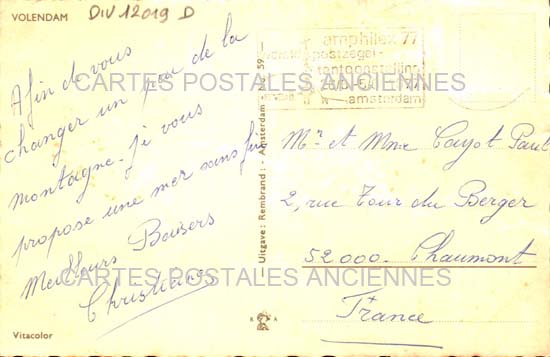 VOLENDAM
DIV 12019 D
amphilex 77
postzegel-
tentoonstelling
amsterdam
CARTES POSTALES ANCIENNES
Afin de vous
changer un peu de la
montagne je vous
propose une mer sans fin
Meilleurs Baisers
Christiane
Uitgave: Rembrand: - Amsterdam - No. 59 -
Mr et Mme Cayot Paul
2, rue Tour du Berger
52000. Chaumont
France
CARTES POSTALES ANCIENNES
R A
Vitacolor